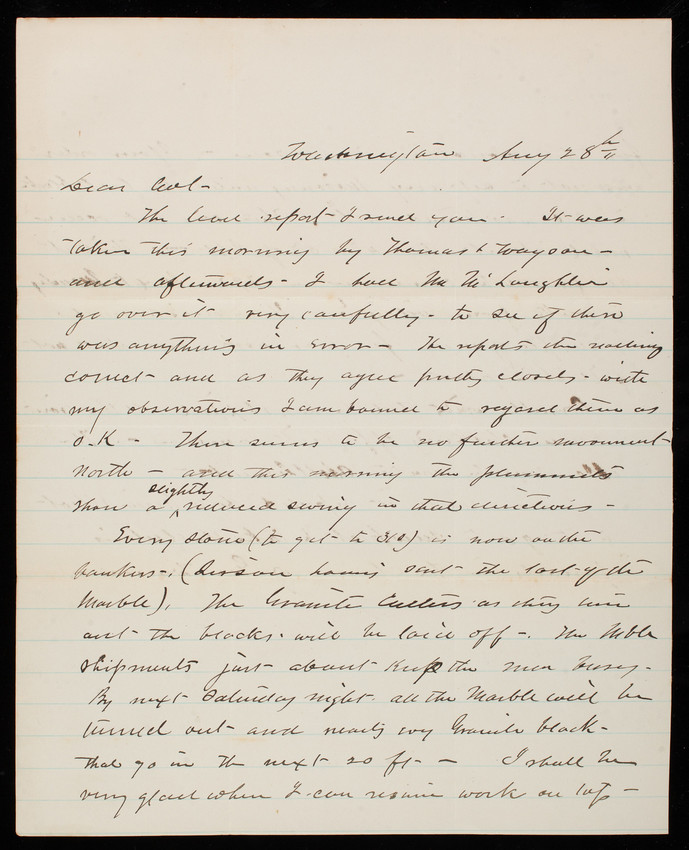 Washington Aug 28th
Dear Col -
The level report I send you. It was
taken this morning by Thomas & Wayson -
and afterwards - I had Mr McLaughlin
go over it very carefully - to see if there
was anything in error - He reports the readings
correct - and as they agree pretty closely - with
my observations I am bound to regard them as
O.K - There seems to be no further movement
North - and this morning the plummets
show a slightly reduced swing in that direction -
Every stone (to get to 310) is now on the
bankers -. (Sisson having sent the last of the
Marble). The Granite Cutters as they turn
out the blocks will be laid off -. The Mble
shipments just about keep the men busy -
By next Saturday night all the Marble will be
turned out - and nearly every Granite block -
that go in the next 20 ft - - I shall be
very glad when I can resume work on top -